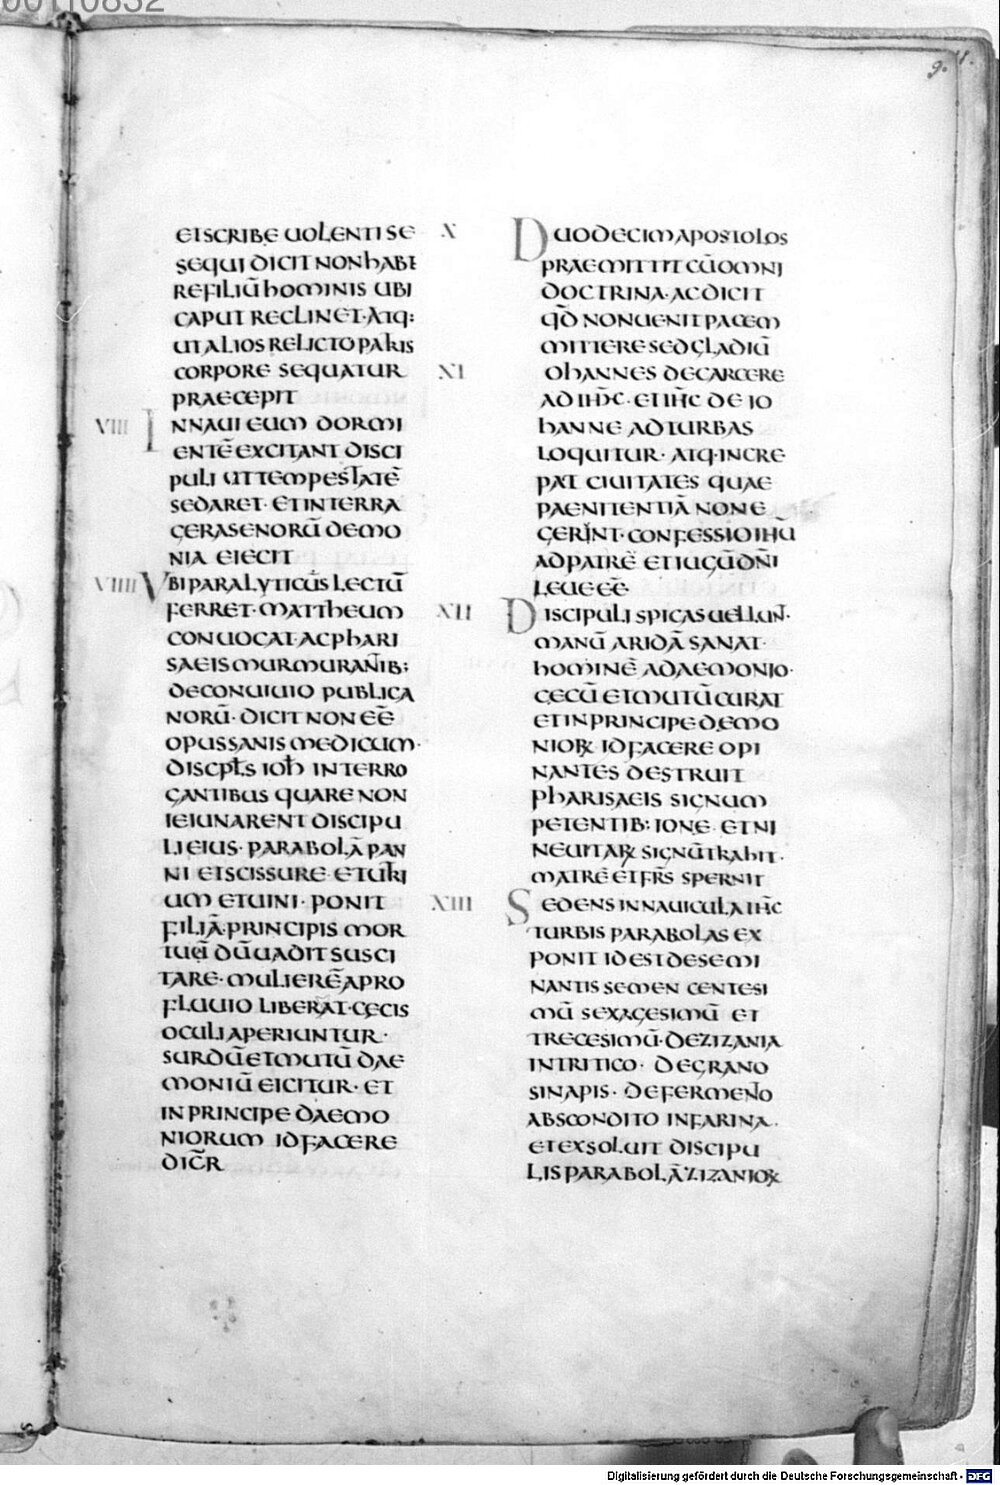 00110832
9.
ETSCRIBE UOLENTI SE
SEQUI DICIT NON hABE
RE FILIŪ hOMINIS UBI
CAPUT RECLINET·ATQ:
UT ALIOS RELICTO PATRIS
CORPORE SEQUATUR
PRAECEPIT
VIII INNAUI EUM DORMI
ENTĒ EXCITANT DISCI
PULI UT TEMPESTATĒ
SEDARET· ET INTERRA
GERASENORŪ DEMO
NIA EIECIT
VIIII UBI PARALYTICUS LECTŪ
FERRET· MATTHEUM
CONUOCAT· AC PhARI
SAEIS MURMURANTIB;
DE CONUIUIO PUBLICA
NORŪ· DICIT NON EĒ
OPUS SANIS MEDICUM·
DISCPLS IOh INTERRO
GANTIBUS QUARE NON
IEIUNARENT DISCIPU
LI EIUS· PARABOLĀ PAN
NI ET SCISSURE ET UTRI
UM ET UINI· PONIT
FILIĀ·PRINCIPIS MOR
TUĀ DŪ UADIT SUSCI
TARE· MULIERĒ A PRO
FLUUIO LIBERAT·CECIS
OCULI APERIUNTUR·
SURDŪ ET MUTŪ DAE
MONIŪ EICITUR· ET
IN PRINCIPE DAEMO
NIORUM ID FACERE
DICR̄
X DUODECIM APOSTOLOS
PRAEMITTIT CŪ OMNI
DOCTRINA· AC DICIT
QD̄ NON UENIT PACEM
MITTERE SED GLADIŪ
XI OhANNES DE CARCERE
AD IHC̄· ET IHC̄ DE IO
hANNE AD TURBAS
LOQUITUR· ATQ·INCRE
PAT CIUITATES QUAE
PAENITENTIĀ NON E
GERINT· CONFESSIO IHŪ
AD PATRĒ ET IUGŪ DN̄I
LEUE EĒ
XII DISCIPULI SPICAS UELLUN̄·
MANŪ ARIDĀ SANAT·
hOMINĒ A DAEMONIO·
CECŪ ET MUTŪ CURAT
ET IN PRINCIPE DEMO
NIOꝜ ID FACERE OPI
NANTES DESTRUIT
PhARISAEIS SIGNUM
PETENTIB; IONE· ET NI
NEUITAꝜ SIGNŪ TRAhIT·
MATRĒ ET FRS̄ SPERNIT
XIII SEDENS IN NAUICULA IHC̄
TURBIS PARABOLAS EX
PONIT ID EST DE SEMI
NANTIS SEMEN CENTESI
MŪ SEXAGESIMŪ ET
TRECESIMŪ· DE ZIZANIA
IN TRITICO· DE GRANO
SINAPIS· DE FERMENTO
ABSCONDITO IN FARINA·
ET EXSOLUIT DISCIPU
LIS PARABOLĀ ZIZANIOꝜ
Digitalisierung gefördert durch die Deutsche Forschungsgemeinschaft - DFG